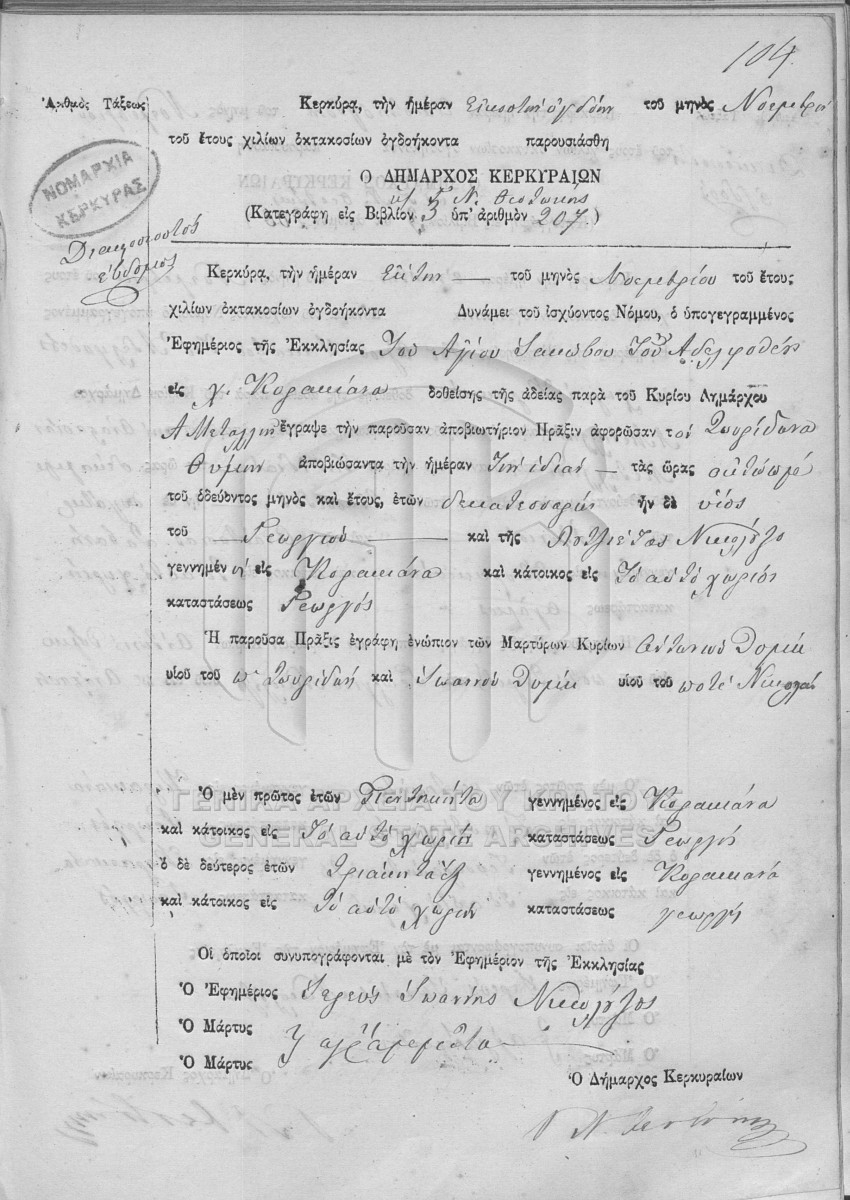 104.
Ἀριθμὸς Τάξεως
Κερκύρᾳ, τὴν ἡμέραν Εἰκοστὴν ὀγδόην τοῦ μηνὸς Νοεμβρίου
τοῦ ἔτους χιλίων ὀκτακοσίων ὀγδοήκοντα παρουσιάσθη
ΝΟΜΑΡΧΙΑ
ΚΕΡΚΥΡΑΣ
Ὁ ΔΗΜΑΡΧΟΣ ΚΕΡΚΥΡΑΙΩΝ
Ν. Θεοτώκης
(Κατεγράφη εἰς Βιβλίον 5 ὑπ' ἀριθμὸν 207.)
Διακοσιοστός
έβδομος
Κερκύρᾳ, τὴν ἡμέραν Εκτην τοῦ μηνὸς Νοεμβρίου τοῦ ἔτους
χιλίων ὀκτακοσίων ὀγδοήκοντα Δυνάμει τοῦ ἰσχύοντος Νόμου, ὁ ὑπογεγραμμένος
Ἐφημέριος τῆς Ἐκκλησίας Τοῦ Αγίου Ιακώβου Τοῦ Αδελφοθέου
εἰς χ. Κορακιάνα δοθείσης τῆς ἀδείας παρὰ τοῦ Κυρίου Δημάρχου
Α Μεταλλη ἔγραψε τὴν παροῦσαν ἀποβιωτήριον Πρᾶξιν ἀφορῶσαν τον Σπυρίδωνα
Θύμην ἀποβιώσαντα τὴν ἡμέραν Τήν ιδίαν τὰς ὥρας οκτώ
τοῦ ὁδεύοντος μηνὸς καὶ ἔτους, ἐτῶν δεκατεσσάρων ἦν δὲ υἱός
τοῦ Γεωργίου καὶ τῆς Νικολύζο
γεννημέν ος εἰς Κορακιάνα καὶ κάτοικος εἰς Τό αυτό χωρίον
καταστάσεως Γεωργός
Ἡ παροῦσα Πρᾶξις ἐγράφη ἐνώπιον τῶν Μαρτύρων Κυρίων Αντωνίου Θυμη
υἱοῦ τοῦ π. Σπυρίδων καὶ Ιωάννου Θυμη υἱοῦ τοῦ ποτέ Νικολάου
ΓΕΝΙΚΑ ΑΡΧΕΙΑ ΤΟΥ ΚΡΑΤΟΥΣ
GENERAL STATE ARCHIVES
Ὁ μὲν πρῶτος ἐτῶν Πεντήκοντα γεννημένος εἰς Κορακιάνα
καὶ κάτοικος εἰς Τό αυτό χωρίον καταστάσεως Γεωργός
ὁ δὲ δεύτερος ἐτῶν Τριάκοντα έξ γεννημένος εἰς Κορακιάνα
καὶ κάτοικος εἰς Τό αυτό χωρίον καταστάσεως γεωργός
Οἱ ὁποῖοι συνυπογράφονται μὲ τὸν Ἐφημέριον τῆς Ἐκκλησίας
Ὁ Ἐφημέριος Ιερεύς Ιωάννης Νικολύζος
Ὁ Μάρτυς
Ὁ Μάρτυς αγράμματοι
Ὁ Δήμαρχος Κερκυραίων
Ν. Θεοτώκης